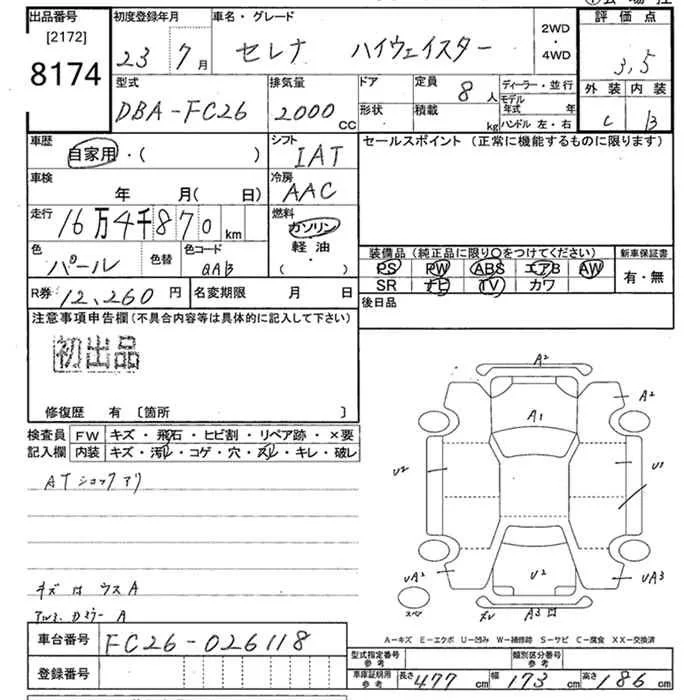 出品番号
[2172]
8174
初度登録年月
23 7月
車名・グレード
セレナ ハイウェイスター
2WD
・
4WD
評価点
3.5
外装 内装
C B
型式
DBA-FC26
排気量
2000cc
ドア
形状
定員
8人
積載
kg
ディーラー・並行
モデル年式 年
ハンドル 左・右
車歴
自家用・( )
シフト
IAT
セールスポイント (正常に機能するものに限ります)
車検
年 月(日)
冷房
AAC
走行
16万4千870km
燃料
ガソリン
軽油・
( )
色
パール
色替
色コード
QAB
装備品 (純正品に限り○をつけてください)
PS PW ABS エアB AW
SR ナビ TV カワ
新車保証書
有・無
R券 12,260円
名変期限 月 日
後日品
注意事項申告欄(不具合内容等は具体的に記入して下さい)
初出品
修復歴 有 [箇所 ]
検査員記入欄
FW キズ・飛石・ヒビ割・リペア跡・×要
内装 キズ・汚れ・コゲ・穴・スレ・キレ・破レ
ATショックアリ
キズ ウスA
A2
A1
A2
U2
U1
UA2
U2
UA3
スペ
ズレ
A3
A-キズ E-エクボ U-凹み W-補修跡 S-サビ C-腐食 XX-交換済
車台番号
FC26-026118
登録番号
型式指定番号
参考
類別区分番号
参考
車庫証明用
参考
長さ 477cm 幅 173cm 高さ 186cm